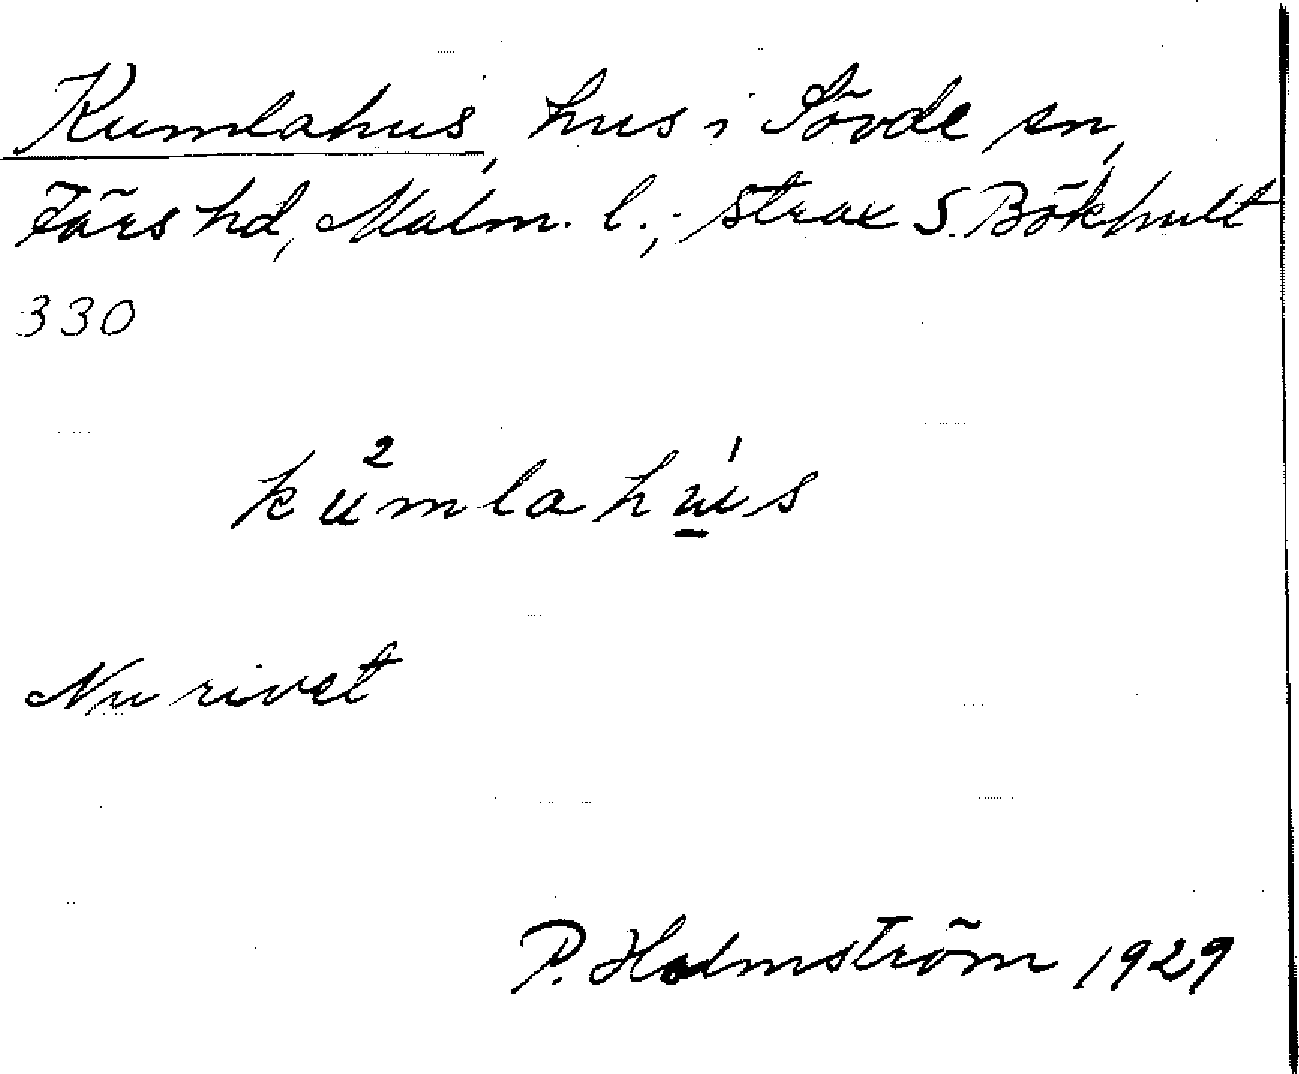 Kumlahus, hus i Sövde sn,
Färs hd, Malm. l.; strax S. Bökhult
330
ku²mlahu¹s
Nu rivet
P. Holmström 1929